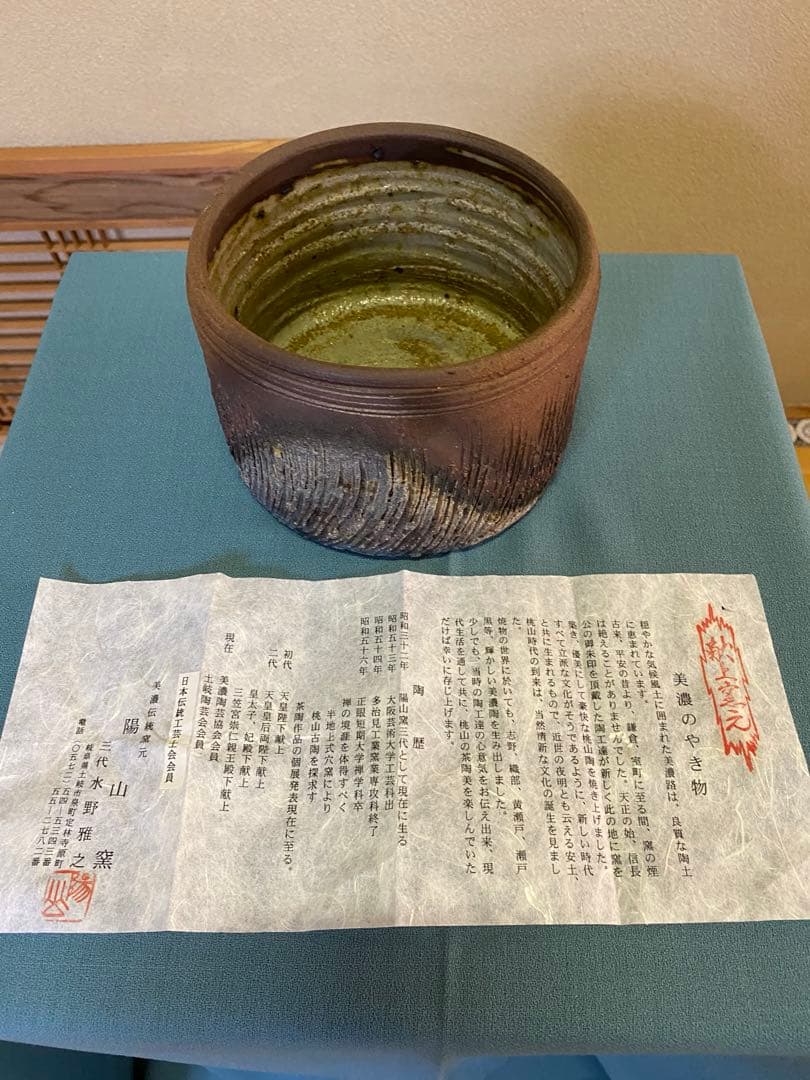 献上窯元
美濃のやき物
穏やかな気候風土に囲まれた美濃路は、良質な陶土
に恵まれています。
古来、平安の昔より 鎌倉、室町に至る間、窯の煙
は絶えることがありませんでした。天正の始、信長
公の御朱印を頂戴した陶工達が新しく此の地に窯を
築き、優美にして豪快な桃山陶を焼き上げました。
すべて立派な文化がそうであるように、新しい時代
と共に生まれるもので、近世の夜明とも云える安土、
桃山時代の到来は、当然清新な文化の誕生を見まし
た。
焼物の世界に於いても、志野、織部、黄瀬戸、瀬戸
黒等、輝かしい美濃陶を生み出しました。
少しでも、当時の陶工達の心意気をお伝え出来、現
代生活を通して共に、桃山の茶陶美を楽しんでいた
だけば幸いに存じ上げます。
陶歴
昭和三十二年 陽山窯三代として現在に生る
昭和五十三年 大阪芸術大学工芸科出
昭和五十四年 多治見工業窯業専攻科終了
昭和五十六年 正眼短期大学禅学科卒
禅の境涯を体得すべく
半地上式穴窯により
桃山古陶を探求す
茶陶作品の個展発表現在に至る。
初代 天皇陛下献上
二代 天皇皇后両陛下献上
皇太子、妃殿下献上
三笠宮崇仁親王殿下献上
現在 美濃陶芸協会会員
土岐陶芸会会員
日本伝統工芸士会会員
美濃伝統窯元
陽山窯
三代 水野雅之
岐阜県土岐市泉町定林寺原町
電話(〇五七二)五四―五三四三番
五五―二七八二番
陽山